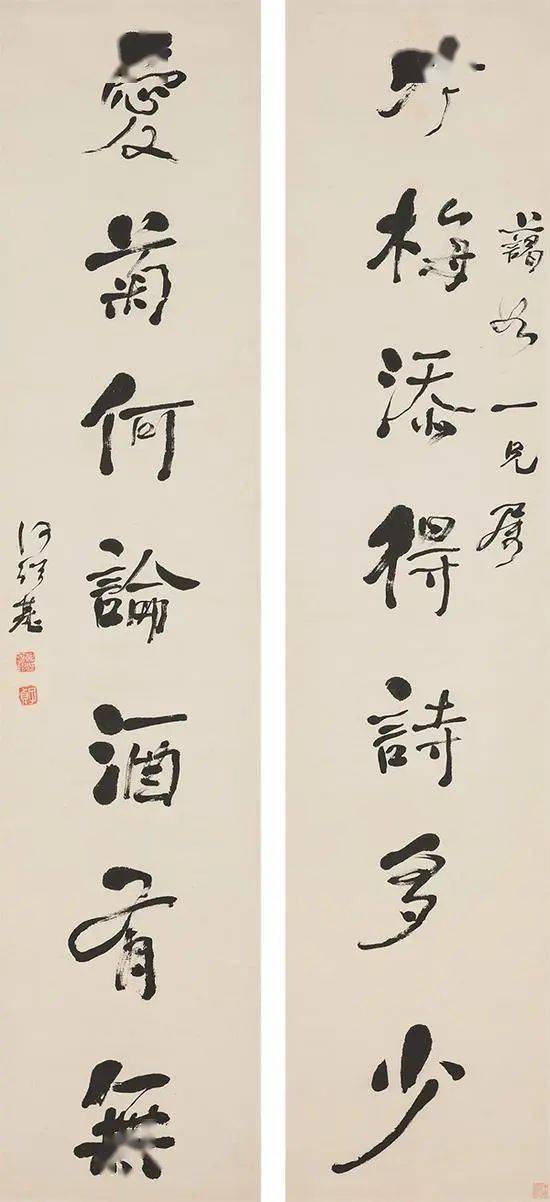 藹如一兄屬
梅添得詩多少
愛菊何論酒有無
何紹基